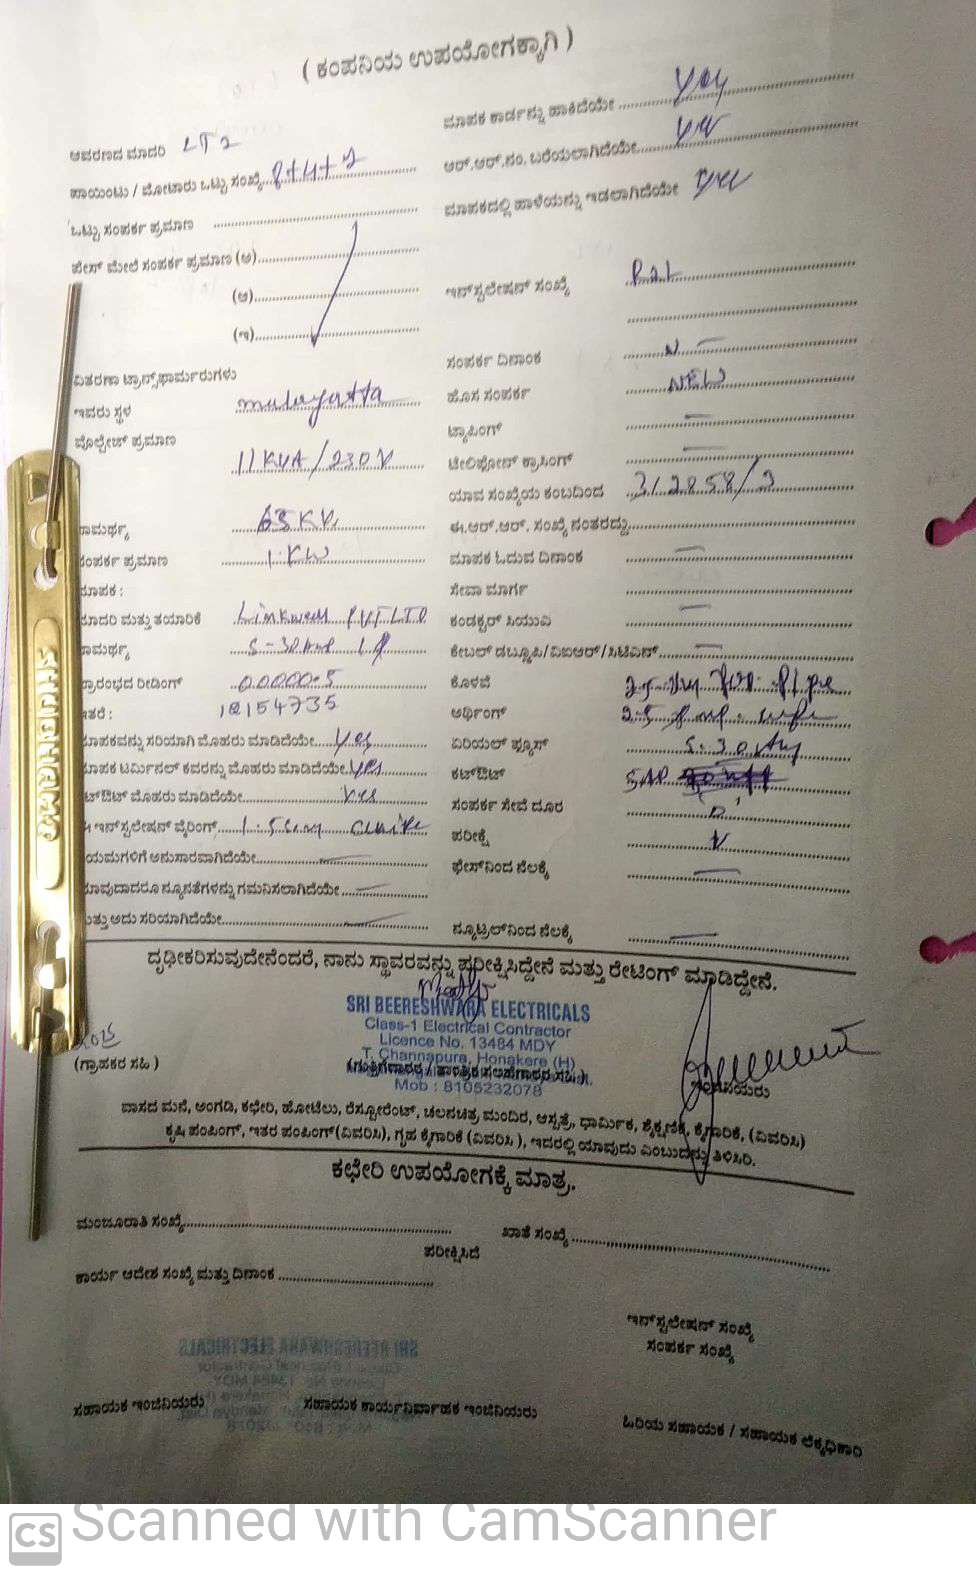 ( ಕಂಪನಿಯ ಉಪಯೋಗಕ್ಕಾಗಿ )
ಆವರಣದ ಮಾದರಿ LT2
ಪಾಯಿಂಟು / ಮೋಟಾರು ಒಟ್ಟು ಸಂಖ್ಯೆ
ಒಟ್ಟು ಸಂಪರ್ಕ ಪ್ರಮಾಣ
ಫೇಸ್ ಮೇಲೆ ಸಂಪರ್ಕ ಪ್ರಮಾಣ (ಅ)
(ಆ)
(ಇ)
ವಿತರಣಾ ಟ್ರಾನ್ಸ್‌ಫಾರ್ಮರುಗಳು
ಇವರು ಸ್ಥಳ
ವೋಲ್ಟೇಜ್ ಪ್ರಮಾಣ
11 KVA / 230 V
ಸಾಮರ್ಥ್ಯ 63 KV
ಸಂಪರ್ಕ ಪ್ರಮಾಣ 1 KW
ಮಾಪಕ :
ಮಾದರಿ ಮತ್ತು ತಯಾರಿಕೆ Linkwell PVT LTD
ಸಾಮರ್ಥ್ಯ
ಪ್ರಾರಂಭದ ರೀಡಿಂಗ್ 00000.5
ಇತರೆ : 18154735
ಮಾಪಕವನ್ನು ಸರಿಯಾಗಿ ಮೊಹರು ಮಾಡಿದೆಯೇ Yes
ಮಾಪಕ ಟರ್ಮಿನಲ್ ಕವರನ್ನು ಮೊಹರು ಮಾಡಿದೆಯೇ Yes
ಕಟ್‌ಔಟ್ ಮೊಹರು ಮಾಡಿದೆಯೇ Yes
ಈ ಇನ್‌ಸ್ಟಲೇಷನ್ ವೈರಿಂಗ್
ನಿಯಮಗಳಿಗೆ ಅನುಸಾರವಾಗಿದೆಯೇ
ಯಾವುದಾದರೂ ನ್ಯೂನತೆಗಳನ್ನು ಗಮನಿಸಲಾಗಿದೆಯೇ
ಮತ್ತು ಅದು ಸರಿಯಾಗಿದೆಯೇ
ಮಾಪಕ ಕಾರ್ಡನ್ನು ಹಾಕಿದೆಯೇ Yes
ಆರ್.ಆರ್.ನಂ. ಬರೆಯಲಾಗಿದೆಯೇ Yes
ಮಾಪಕದಲ್ಲಿ ಹಾಳೆಯನ್ನು ಇಡಲಾಗಿದೆಯೇ Yes
ಇನ್‌ಸ್ಟಲೇಷನ್ ಸಂಖ್ಯೆ
ಸಂಪರ್ಕ ದಿನಾಂಕ
ಹೊಸ ಸಂಪರ್ಕ NEW
ಟ್ಯಾಪಿಂಗ್
ಟೇಲಿಫೋನ್ ಕ್ರಾಸಿಂಗ್
ಯಾವ ಸಂಖ್ಯೆಯ ಕಂಬದಿಂದ
ಈ.ಆರ್.ಆರ್. ಸಂಖ್ಯೆ ನಂತರದ್ದು
ಮಾಪಕ ಓದುವ ದಿನಾಂಕ
ಸೇವಾ ಮಾರ್ಗ
ಕಂಡಕ್ಟರ್ ಸಿಯುವಿ
ಕೇಬಲ್ ಡಬ್ಲ್ಯೂಪಿ/ವಿಐಆರ್/ಸಿಟಿಎಸ್
ಕೊಳವೆ
ಅರ್ಥಿಂಗ್
ಏರಿಯಲ್ ಫ್ಯೂಸ್
ಕಟ್‌ಔಟ್
ಸಂಪರ್ಕ ಸೇವೆ ದೂರ
ಪರೀಕ್ಷೆ
ಫೇಸ್‌ನಿಂದ ನೆಲಕ್ಕೆ
ನ್ಯೂಟ್ರಲ್‌ನಿಂದ ನೆಲಕ್ಕೆ
ದೃಢೀಕರಿಸುವುದೇನೆಂದರೆ, ನಾನು ಸ್ಥಾವರವನ್ನು ಪರೀಕ್ಷಿಸಿದ್ದೇನೆ ಮತ್ತು ರೇಟಿಂಗ್ ಮಾಡಿದ್ದೇನೆ.
SRI BEERESHWARA ELECTRICALS
Class-1 Electrical Contractor
Licence No. 13484 MDY
T. Channapura, Honakere (H)
Mob : 8105232078
(ಗ್ರಾಹಕರ ಸಹಿ )
(ಗುತ್ತಿಗೆದಾರರ / ತಾಂತ್ರಿಕ ಸಲಹೆಗಾರರ ಸಹಿ )
ಇಂಜಿನಿಯರು
ವಾಸದ ಮನೆ, ಅಂಗಡಿ, ಕಛೇರಿ, ಹೋಟೆಲು, ರೆಸ್ಟೋರೆಂಟ್, ಚಲನಚಿತ್ರ ಮಂದಿರ, ಆಸ್ಪತ್ರೆ, ಧಾರ್ಮಿಕ, ಶೈಕ್ಷಣಿಕ, ಕೈಗಾರಿಕೆ, (ವಿವರಿಸಿ)
ಕೃಷಿ ಪಂಪಿಂಗ್, ಇತರ ಪಂಪಿಂಗ್(ವಿವರಿಸಿ), ಗೃಹ ಕೈಗಾರಿಕೆ (ವಿವರಿಸಿ ), ಇದರಲ್ಲಿ ಯಾವುದು ಎಂಬುದನ್ನು ತಿಳಿಸಿರಿ.
ಕಛೇರಿ ಉಪಯೋಗಕ್ಕೆ ಮಾತ್ರ.
ಮಂಜೂರಾತಿ ಸಂಖ್ಯೆ ಖಾತೆ ಸಂಖ್ಯೆ
ಪರೀಕ್ಷಿಸಿದೆ
ಕಾರ್ಯ ಆದೇಶ ಸಂಖ್ಯೆ ಮತ್ತು ದಿನಾಂಕ
ಇನ್‌ಸ್ಟಲೇಷನ್ ಸಂಖ್ಯೆ
ಸಂಪರ್ಕ ಸಂಖ್ಯೆ
ಸಹಾಯಕ ಇಂಜಿನಿಯರು ಸಹಾಯಕ ಕಾರ್ಯನಿರ್ವಾಹಕ ಇಂಜಿನಿಯರು ಹಿರಿಯ ಸಹಾಯಕ / ಸಹಾಯಕ ಲೆಕ್ಕಾಧಿಕಾರಿ
CS Scanned with CamScanner